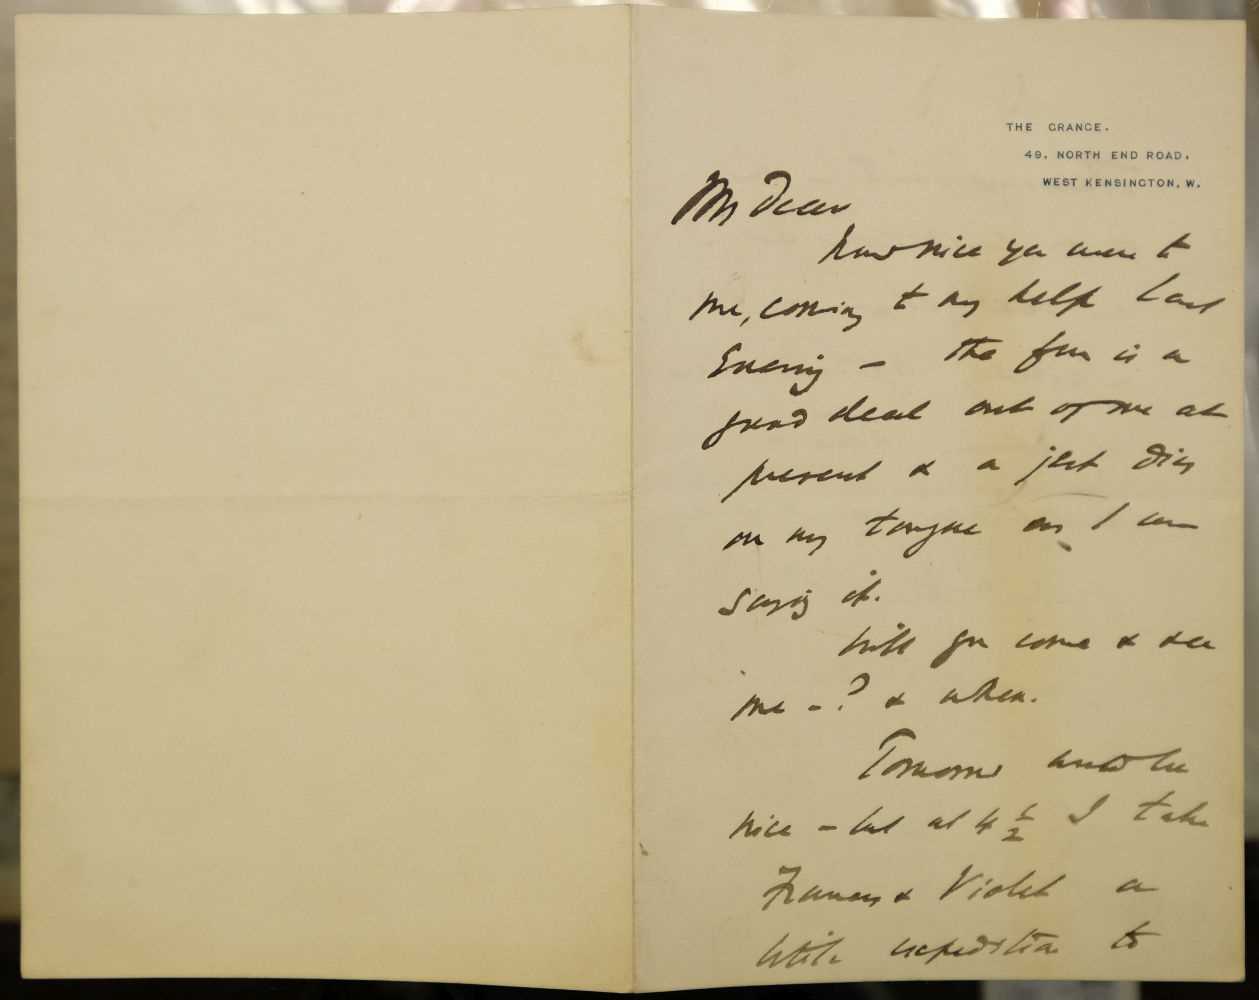 THE GRANGE.
49, NORTH END ROAD,
WEST KENSINGTON, W.
My Dear
how nice you were to
me, coming to my help last
Evening – the fun is a
good deal out of me at
present & a jest dies
on my tongue as I am
saying it.
Will you come & see
me – ? & when.
Tomorrow would be
nice – but at 4 1/2 I take
Frances & Violet a
little expedition to